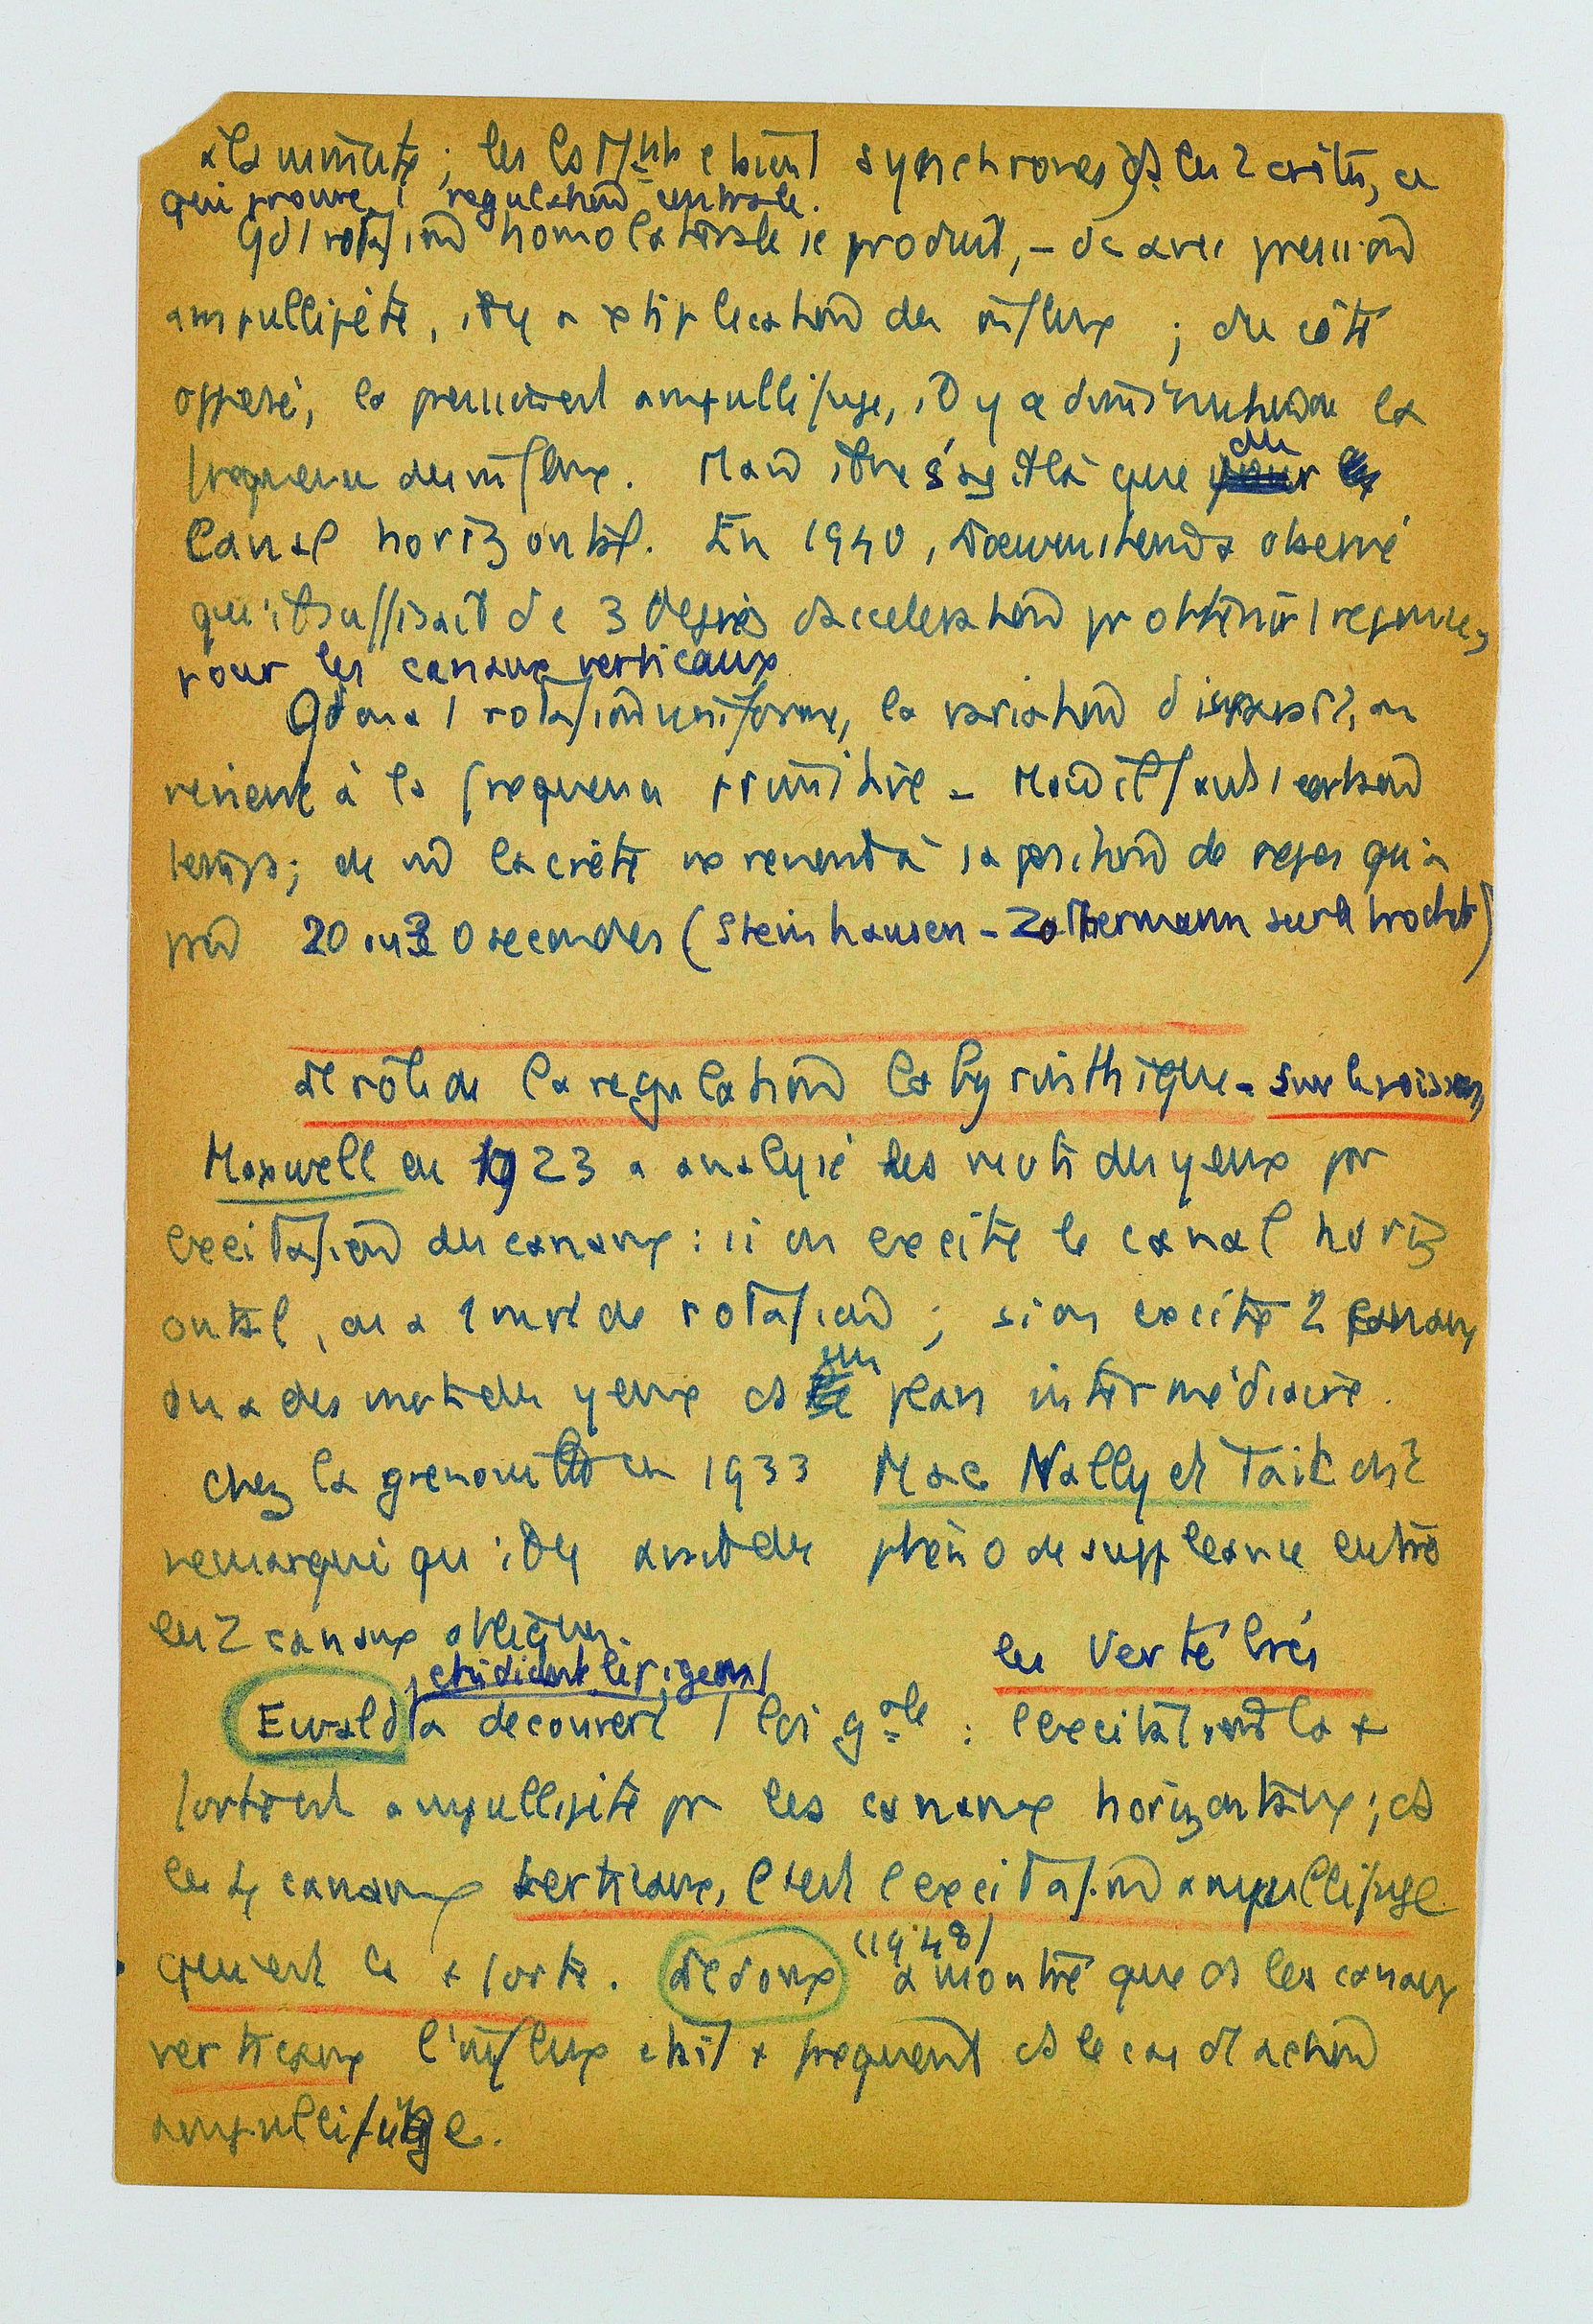 à la minute ; les synchrones ds les 2 cotés, ce
qui prouve 1 regulation centrale.
Qd 1 rotation homolaterale se produit, – de avec pression
ampullipète, il y a multiplication des influx ; du côté
opposé, la pression est ampullifuge, il y a diminution de la
frequence des influx. Mais il ne s'agit là que du
Canal horizontal. En 1940, a observé
qu'il suffisait de 3 degrés d'acceleration pr obtenir 1 reponse,
pour les canaux verticaux
Qd on a 1 rotation uniforme, la variation disparait, on
revient à la frequence primitive – Mais il faut 1 certain
temps ; la crête ne revient à sa position de repos qu'
20 ou 30 secondes (Steinhausen – Zottermann sur le brochet)
Le rôle de la regulation labyrinthique – sur les poissons,
Maxwell en 1923 a analysé les mvts des yeux par
excitation des canaux : si on excite le canal horiz
ontal, on a 1 mvt de rotation ; si on excite 2 canaux
on a des mvts des yeux ds un plan intermédiaire.
Chez la grenouille en 1933 Mac Nally et Tait ont
remarqué qu'il y avait des phéno de suppleance entre
les 2 canaux obliques.
les Vertébrés
Ewald, etudiant les pigeons, a decouvert 1 loi gale : l'excitation la +
forte est ampullipète pr les canaux horizontaux ; ds
les 4 canaux verticaux, c'est l'excitation ampullifuge
qui est la + forte. Ledoux (1948) a montré que ds les canaux
verticaux l'influx était + frequent ds le cas d'action
ampullifuge.